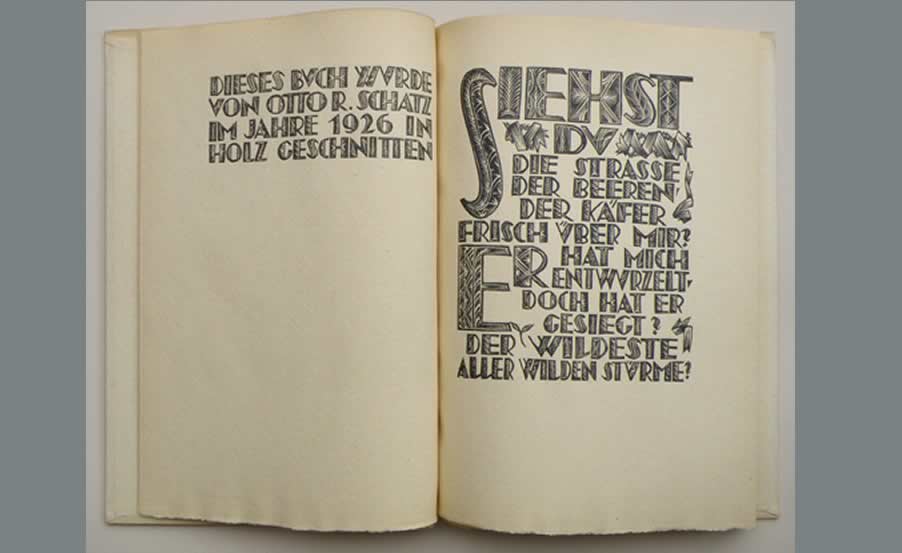 DIESES BVCH WVRDE
VON OTTO R. SCHATZ
IM JAHRE 1926 IN
HOLZ GESCHNITTEN
SIEHST
DV
DIE STRASSE
DER BEEREN,
DER KÄFER
FRISCH ÜBER MIR?
ER HAT MICH
ENTWVRZELT.
DOCH HAT ER
GESIEGT?
DER WILDESTE
ALLER WILDEN STVRME?